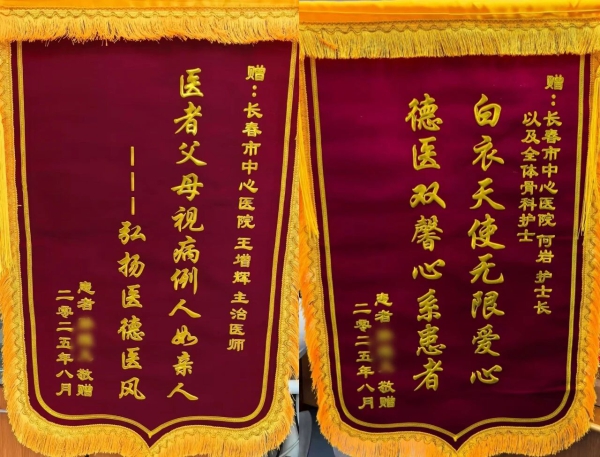 赠：长春市中心医院 王增辉 主治医师
医者父母视病例人如亲人
———弘扬医德医风
患者 敬赠
二零二五年八月
赠：长春市中心医院 何岩 护士长
以及全体骨科护士
白衣天使无限爱心
德医双馨心系患者
患者 敬赠
二零二五年八月